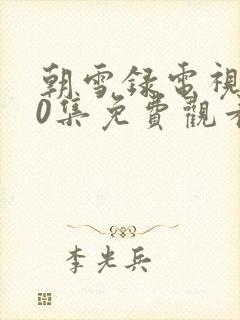 朝雪錄電視
0集免費觀看
李光兵